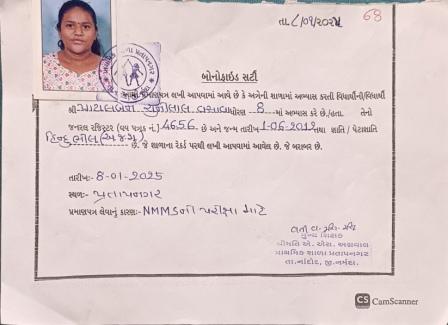 તા. 8/01/2025 68
બોનોફાઇડ સર્ટી
પ્રમાણપત્ર લખી આપવામાં આવે છે કે અત્રેની શાળામાં અભ્યાસ કરતી વિદ્યાર્થીની/વિદ્યાર્થી
શ્રી વસાવા ધોરણ - 8 માં અભ્યાસ કરે છે./હતા. તેનો
જનરલ રજિસ્ટર (વય પત્રક નં.) 4656 - છે અને જન્મ તારીખ 1-06-2012 તથા જ્ઞાતિ / પેટાજ્ઞાતિ
હિન્દુ ભીલ (અ.જ.જા) છે. જે શાળાના રેકર્ડ પરથી લખી આપવામાં આવેલ છે. જે બરાબર છે.
તારીખ:- 8-01-2025
સ્થળ:- પ્રતાપનગર
પ્રમાણપત્ર લેવાનું કારણ:- NMMSની પરીક્ષા માટે
મુખ્ય શિક્ષક
શ્રીમતિ એ. એસ. અગ્રવાલ
પ્રાથમિક શાળા પ્રતાપનગર
તા.નાંદોદ, જી.નર્મદા.
CS CamScanner